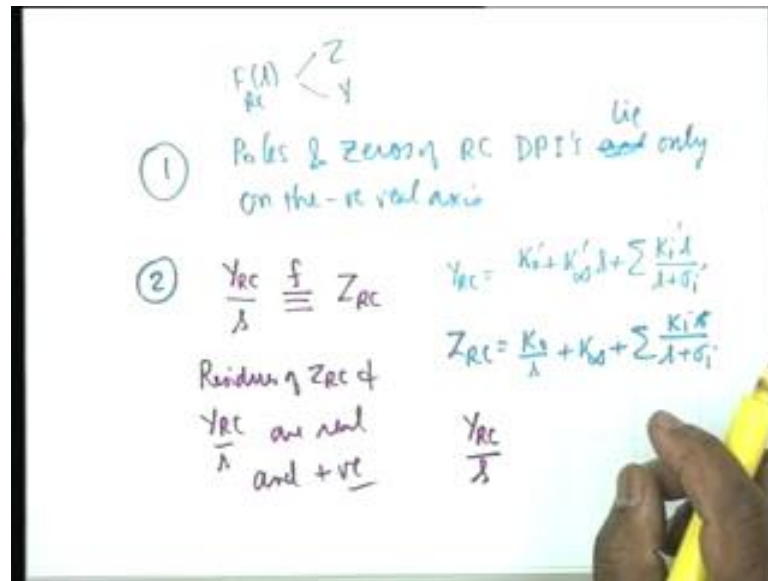 F(s) Z
RC Y
① Poles & Zeros of RC DPI's lie only
on the -ve real axis
② Y_RC/s ≡^f Z_RC
Y_RC = K_0' + K_∞' s + Σ K_i' s/(s+σ_i')
Z_RC = K_0/s + K_∞ + Σ K_i/(s+σ_i)
Residues of Z_RC &
Y_RC/s are real
and +ve
Y_RC/s